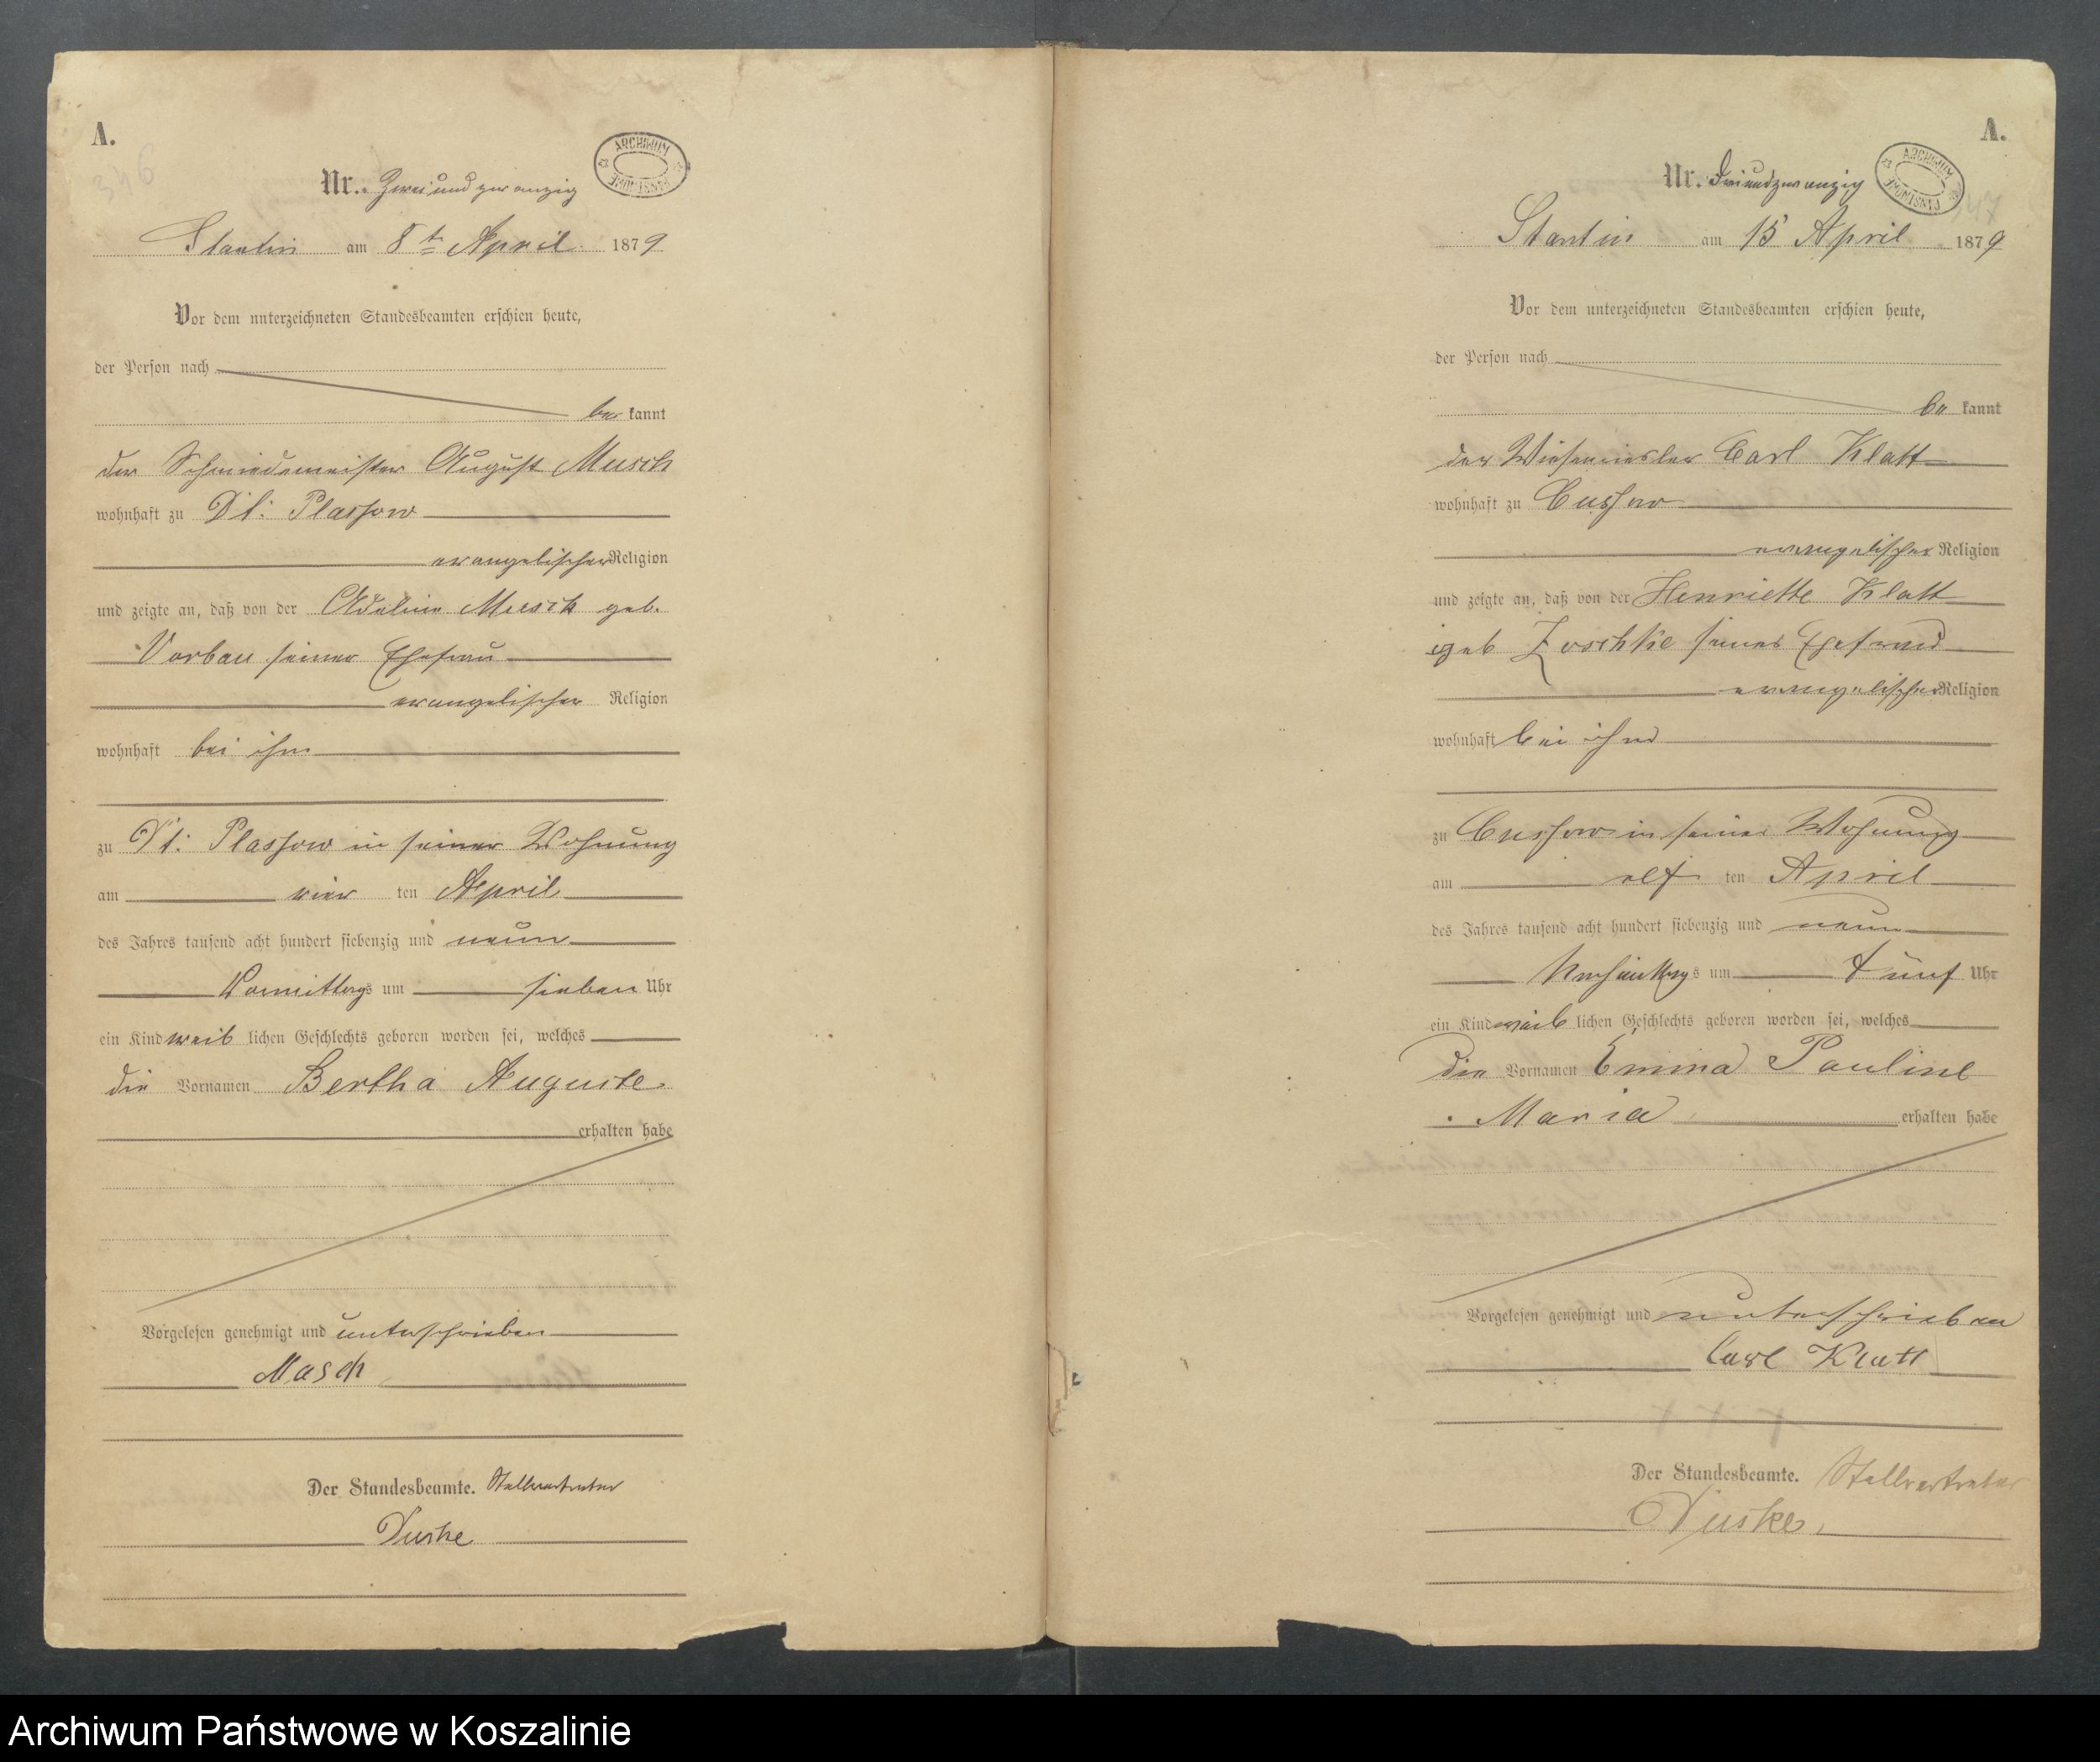 A.
346
Nr. Zweiundzwanzig
ARCHIWUM PAŃSTWOWE
Stantin am 8t April 1879
Vor dem unterzeichneten Standesbeamten erschien heute,
der Person nach
be kannt
der Schmiedemeister August Musch
wohnhaft zu Dt: Plassow
evangelischer Religion
und zeigte an, daß von der Adeline Musch geb.
Vorbau seiner Ehefrau
evangelischer Religion
wohnhaft bei ihm
zu Dt: Plassow in seiner Wohnung
am vier ten April
des Jahres tausend acht hundert siebenzig und neun
Vormittags um sieben Uhr
ein Kind weib lichen Geschlechts geboren worden sei, welches
die Vornamen Bertha Auguste
erhalten habe
Vorgelesen genehmigt und unterschrieben
Masch
Der Standesbeamte. Stellvertreter
A.
Nr. Dreiundzwanzig
ARCHIWUM PAŃSTWOWE
347
Stantin am 15 April 1879
Vor dem unterzeichneten Standesbeamten erschien heute,
der Person nach
be kannt
der Carl Klatt
wohnhaft zu Cussow
evangelischer Religion
und zeigte an, daß von der Henriette Klatt
geb Zoschke seiner Ehefrau
evangelischer Religion
wohnhaft bei ihm
zu Cussow in seiner Wohnung
am elf ten April
des Jahres tausend acht hundert siebenzig und neun
Nachmittags um fünf Uhr
ein Kind weib lichen Geschlechts geboren worden sei, welches
die Vornamen Emma Pauline
Maria erhalten habe
Vorgelesen genehmigt und unterschrieben
Carl Klatt
Der Standesbeamte. Stellvertreter
Archiwum Państwowe w Koszalinie